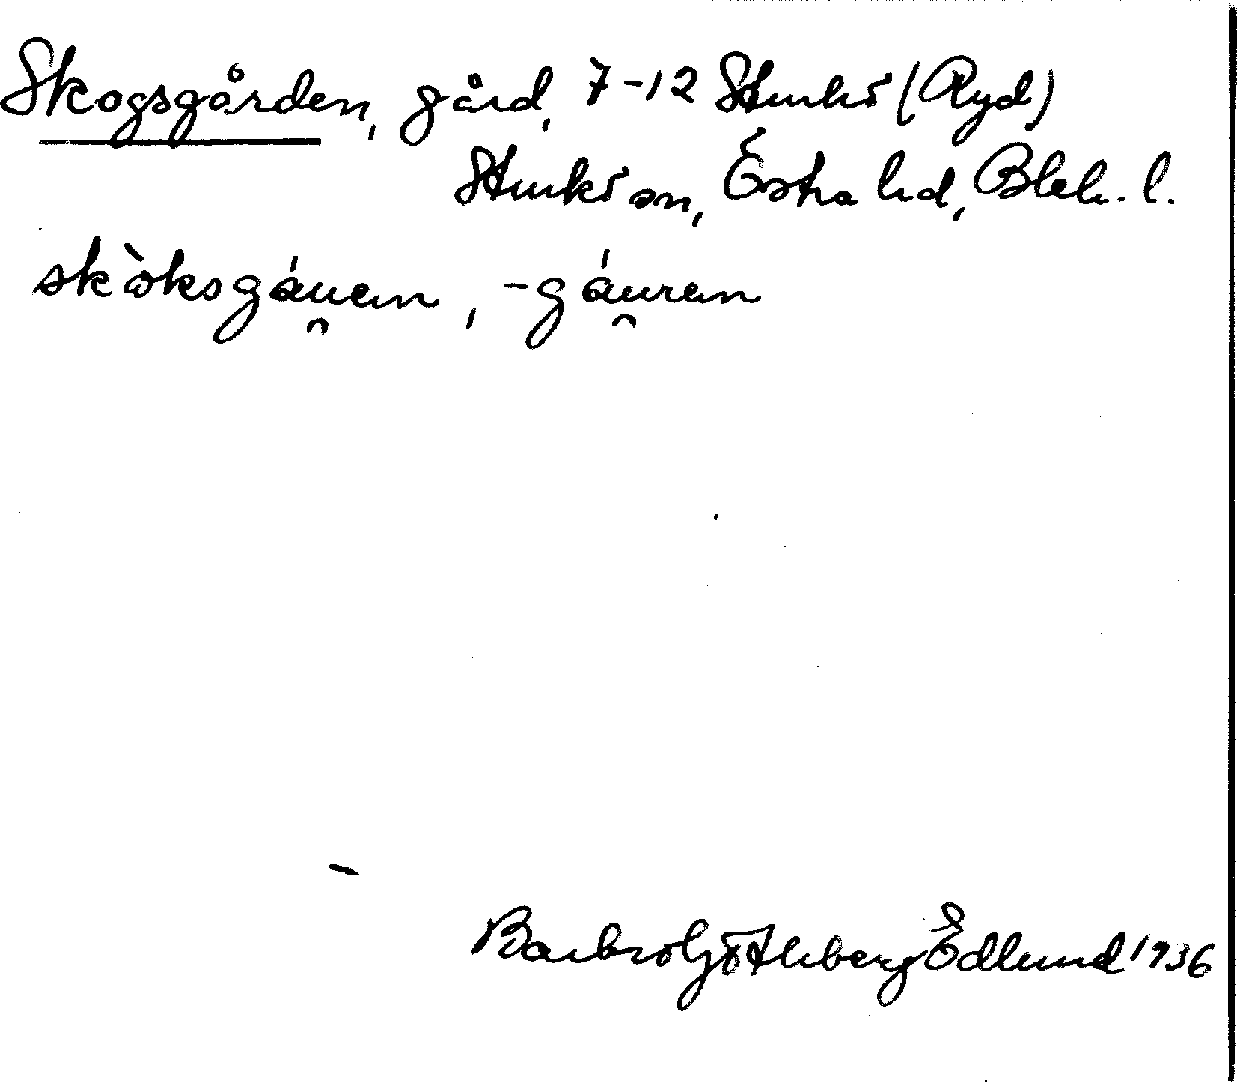 Skogsgården, gård, 7-12 Sturkö (Ryd)
Sturkö sn, Östra hd, Blek. l.
skòksgáu̯en, -gáu̯ren
Barbro Götherberg Edlund 1936